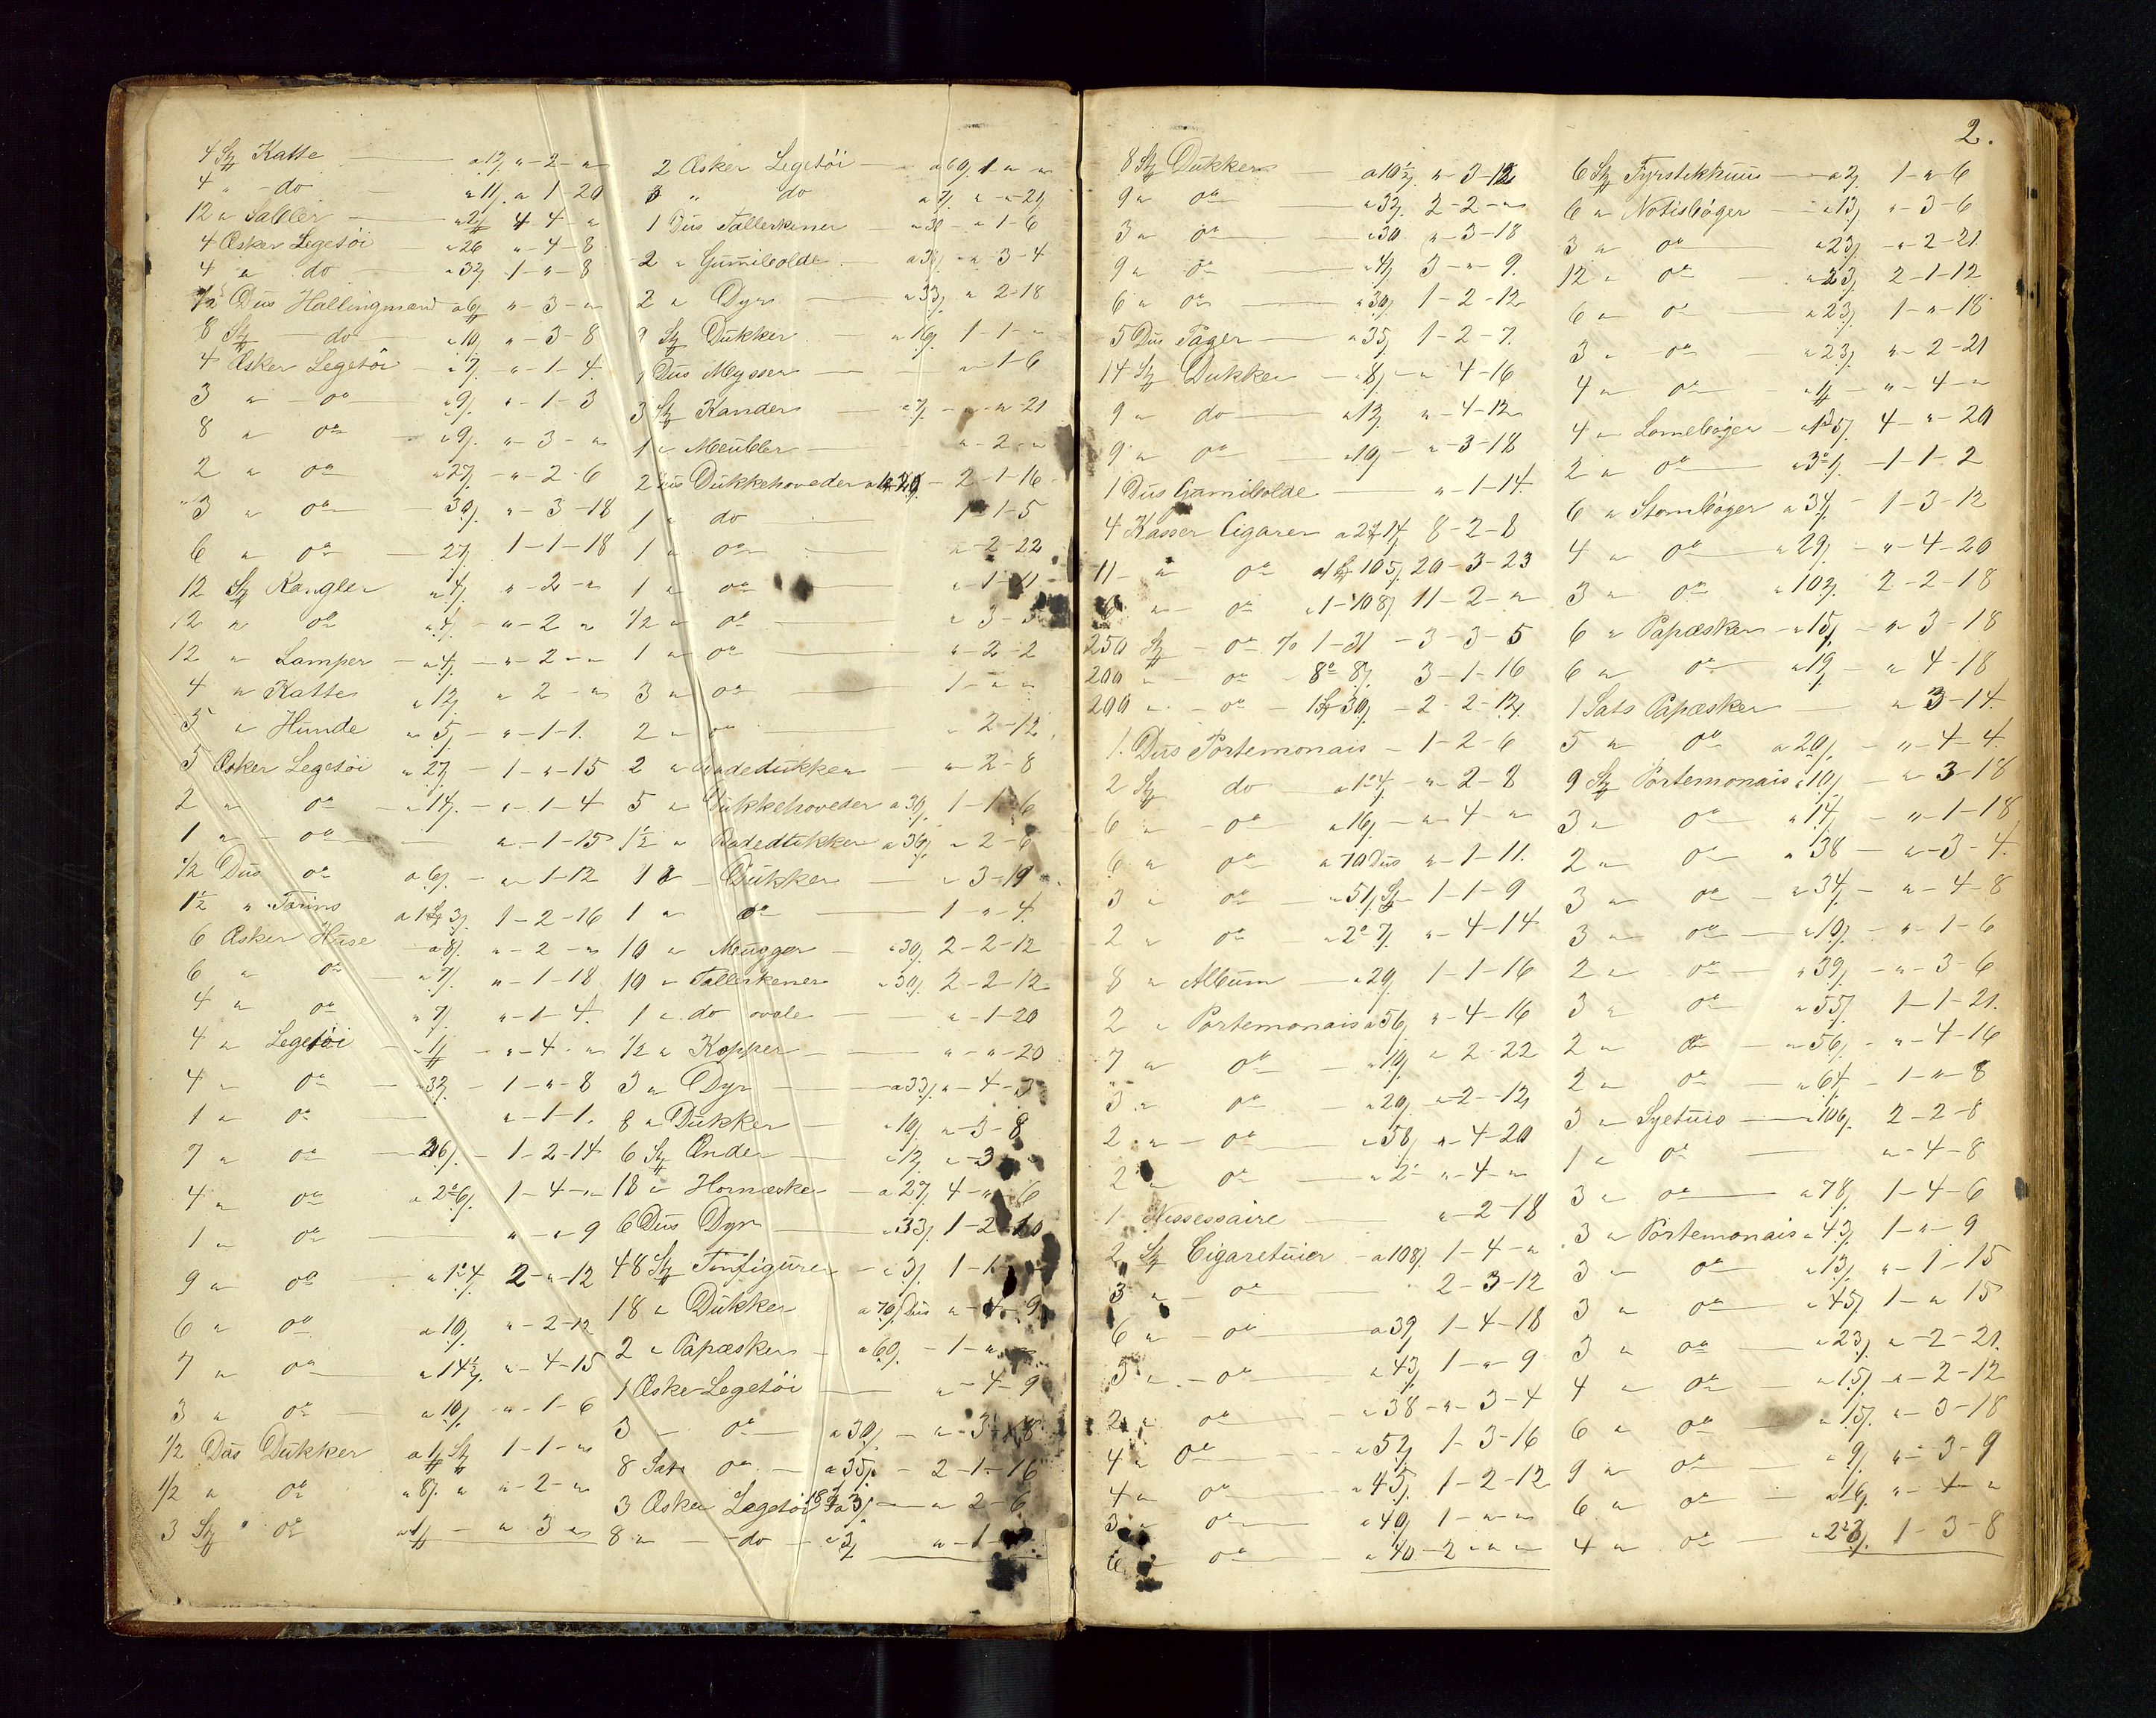 4 Stk Katte a 12 ß " - 2 - "
4 " do a 11 ß " 1 - 20
12 " Sabler a 2 4 - 4 - "
4 Æsker Legetöi " 26 " - 4 - 8
4 " do " 32 ß 1 - " - 8
1/2 Dus Hallingmænd a 6 " - 3 - "
8 Stk do " 10 ß " - 3 - 8
4 Æsker Legetöi " 7 ß " - 1 - 4
3 " do " 9 ß " - 1 - 3
8 " do " 9 ß " - 3 - "
2 " do " 27 ß " - 2 - 6
3 " do 30 ß " - 3 - 18
6 " do 27 ß 1 - 1 - 18
12 Stk Rangler " 4 ß " - 2 - "
12 " do " 4 ß " - 2 "
12 " Lamper " 4 ß " - 2 - "
4 " Katte " 12 ß " 2 - "
5 " Hunde " 5 ß " - 1 - 1
5 Æsker Legetöi " 27 ß 1 - " - 15
2 " do " 14 ß " - 1 - 4
1 " do " - 1 - 15
1/2 Dus do a 6 ß " 1 - 12
1 1/2 " Tarins a 1 3 ß 1 - 2 - 16
6 Æsker Huse a 8 ß " - 2 - "
6 " do " 7 ß " - 1 - 18
4 " do " 7 ß " - 1 - 4
4 " Legetöi " 1 " - 4 - "
4 " do " 32 ß 1 - " - 8
1 " do " - 1 - 1
7 " do 26 ß 1 - 2 - 14
4 " do a 2 6 ß 1 - 4 - "
1 " do " - " 9
9 " do " 1 4 ß 2 - " - 12
6 " do a 10 ß " - 2 - 12
7 " do " 14 1/2 ß " - 4 - 15
3 " do " 10 ß " - 1 - 6
1/2 Dus Dukker a 1 Stk 1 - 1 - "
1/2 " do " 8 ß " " - 2 - "
3 Stk do " 1 " 3 "
2 Æsker Legetöi a 60 ß 1 " "
3 " do a 7 ß " - " - 21
1 Dus Tallerkener " 30 " 1 - 6
2 " Gumibolde a 38 ß " 3 - 4
2 " Dyr " 33 ß " 2 - 18
9 Stk Dukker " 16 ß 1 - 1 - "
1 Dus Meyser " - 1 - 6
3 Stk Kander " 7 ß " - " 21
1 " Meubler " - 2 - "
2 Dus Dukkehoveder 2 - 1 - 16
1 " do 1 - 1 - 5
1 " do " - 2 - 22
1 " do " - 1 - 21
1/2 " do " 3 - 3
1 " do " - 2 - 2
3 " do 1 - " "
2 " do " 2 - 12
2 " Badedukker " - 2 - 8
5 " Dukkehoveder a 30 ß 1 - 1 - 6
1 1/2 " Badedukker a 36 ß " 2 - 6
1 " Dukker " 3 - 19
1 " do 1 - " - 4
10 " Meugger " 30 ß 2 - 2 - 12
10 " Tallerkener " 30 ß 2 - 2 - 12
1 " do ovale " - 1 - 20
1/2 " Kopper " - " - 20
3 " Dyr a 33 ß " - 4 - 3
8 " Dukker " 10 ß " - 3 - 8
6 Stk Ænder " 12 ß " - 3
18 " Hornæsker a 27 ß 4 - " 6
6 Dus Dyr " 33 ß 1 - 2 - 10
48 Stk Tinfigurer " 3 ß 1 - 1
18 " Dukker a 70 ß Dus " - 4 - 9
2 " Papæsker " 60 ß 1 - "
1 Æske Legetöi " - 4 - 9
3 do a 30 ß " - 3 - 18
8 Sat do a 35 ß 2 - 1 - 16
3 Æsker Legetöi 18 a 3 ß " 2 - 6
8 " do " 3 ß " - 1
2.
8 Stk Dukker a 10 1/2 ß " - 3 - 12
9 " do " 32 ß 2 - 2 - "
3 " do " 30 " - 3 - 18
9 " do " 41 ß 3 - " - 9
6 " do " 30 ß 1 - 2 - 12
5 Dus Tager " 35 ß 1 - 2 - 7
14 Stk Dukker " 8 ß " 4 - 16
9 " do " 12 ß " - 4 - 12
9 " do " 10 ß " - 3 - 18
1 Dus Gumibolde " - 1 - 14
4 Kasser Cigarer a 2 14 ß 8 - 2 - 8
11 " do a 1 105 ß 20 - 3 - 23
6 " do a 1 - 108 ß 11 - 2 - "
250 Stk do % 1 - 31 3 - 3 - 5
200 " do 8 ß 3 - 1 - 16
200 " do 1 30 ß 2 - 2 - 12
1 Dus Portemonais 1 - 2 - 6
2 Stk do a 1 4 ß " - 2 - 8
6 " do " 16 ß " - 4 - "
6 " do a 70 Dus " - 1 - 11
3 " do " 51 ß Stk 1 - 1 - 9
2 " do " 2 7 ß " - 4 - 14
8 " Album " 20 ß 1 - 1 - 16
2 " Portemonais a 56 ß " - 4 - 16
7 " do " 10 ß " 2 - 22
3 " do " 20 ß " - 2 - 12
2 " do " 58 ß " - 4 - 20
2 " do " 2 " - 4 - "
1 Nessessaire " - 2 - 18
2 Stk Cigaretuier a 108 ß 1 - 4 - "
3 " do 2 - 3 - 12
6 " do a 39 ß 1 - 4 - 18
3 " do " 43 ß 1 - " - 9
2 " do " 38 " - 3 - 4
4 " do " 52 ß 1 - 3 - 16
4 " do " 45 ß 1 - 2 - 12
3 " do " 40 ß 1 - " "
6 " do " 40 2 - " "
6 Stk Fyrstikhuus a 2 ß 1 - " - 6
6 " Notisbøger " 13 ß " - 3 - 6
3 " do " 23 ß " 2 - 21
12 " do " 23 ß 2 - 1 - 12
6 " do " 23 ß 1 - " - 18
3 " do " 23 ß " - 2 - 21
4 " do " 1 " - 4 - "
4 " Lomebøger 4 - " - 20
2 " do 1 - 1 - 2
6 " Stambøger a 34 ß 1 - 3 - 12
4 " do " 29 ß " - 4 - 20
3 " do " 102 ß 2 - 2 - 18
6 " Papæsker " 15 ß " 3 - 18
6 " do " 19 ß " 4 - 18
1 Sats Papæsker " 3 - 14
5 " do a 20 ß " - 4 - 4
9 Stk Portemonais " 10 ß " 3 - 18
3 " do " 14 ß " 1 - 18
2 " do " 38 " - 3 - 4
3 " do " 34 ß " - 4 - 8
3 " do " 10 ß " - 1 - 6
2 " do " 39 ß " - 3 - 6
3 " do " 55 ß 1 - 1 - 21
2 " do " 56 ß " - 4 - 16
2 " do " 64 ß 1 - " - 8
3 " Syetuis " 106 ß 2 - 2 - 8
1 " do " - 4 - 8
3 " do a 78 ß 1 - 4 - 6
3 " Portemonais " 43 ß 1 - " - 9
3 " do " 13 ß " - 1 - 15
3 " do " 45 ß 1 - " 15
3 " do " 23 ß " - 2 - 21
4 " do " 15 ß " - 2 - 12
6 " do " 15 ß " - 3 - 18
9 " do " 9 ß " - 3 - 9
6 " do " 16 ß " - 4 - "
4 " do 1 - 3 - 8